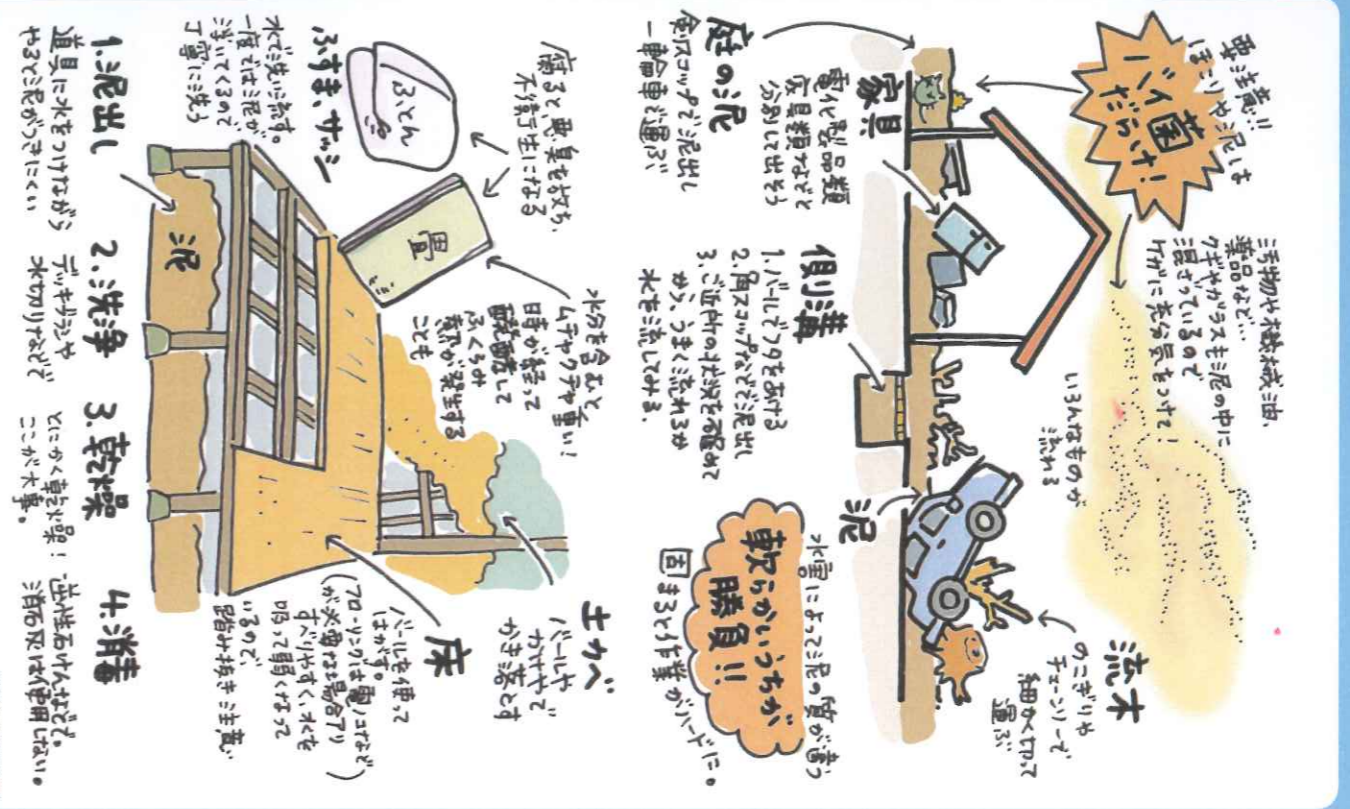 要注意!!
ほこりや泥は
バイ菌
だらけ!
汚物や機械油、
薬品など…
クギやガラスも泥の中に
混ざっているので
ケガに充分気をつけて!
いろんなものが
流れる
流木
のこぎりや
チェーンソーで
細かく切って
運ぶ
家具
電化製品類
家具類などと
分別して出そう
庭の泥
剣スコップで泥出し
一輪車で運ぶ
側溝
1.バールでフタをあける
2.角スコップなどで泥出し
3.ご近所の状況を確かめて
から、うまく流れるか
水を流してみる。
泥
水害によって泥の質が違う
軟らかいうちが
勝負!!
固まると作業がハードに。
腐ると異臭を放ち、
不衛生になる
ふとん
畳
水分を含むと
ムチャクチャ重い!
時が経って
醗酵して
ふくらみ
煮〆が発生する
ことも
ふすま、サッシ
水で洗い流す。
一度では泥が
浮いてくるので
丁寧に洗う
土カベ
バールや
かけやで
かき落とす
床
バールを使って
はがす。
(フローリングは電ノコなど
が必要な場合アリ)
すべりやすく、水を
吸って弱くなって
いるので、
踏み抜き注意
泥
1.泥出し
道具に水をつけながら
やると泥がつきにくい
2.洗浄
デッキブラシや
水切りなどで
3.乾燥
とにかく乾燥!
ここが大事。
4.消毒
逆性石けんなどで。
消石灰は使用しない。